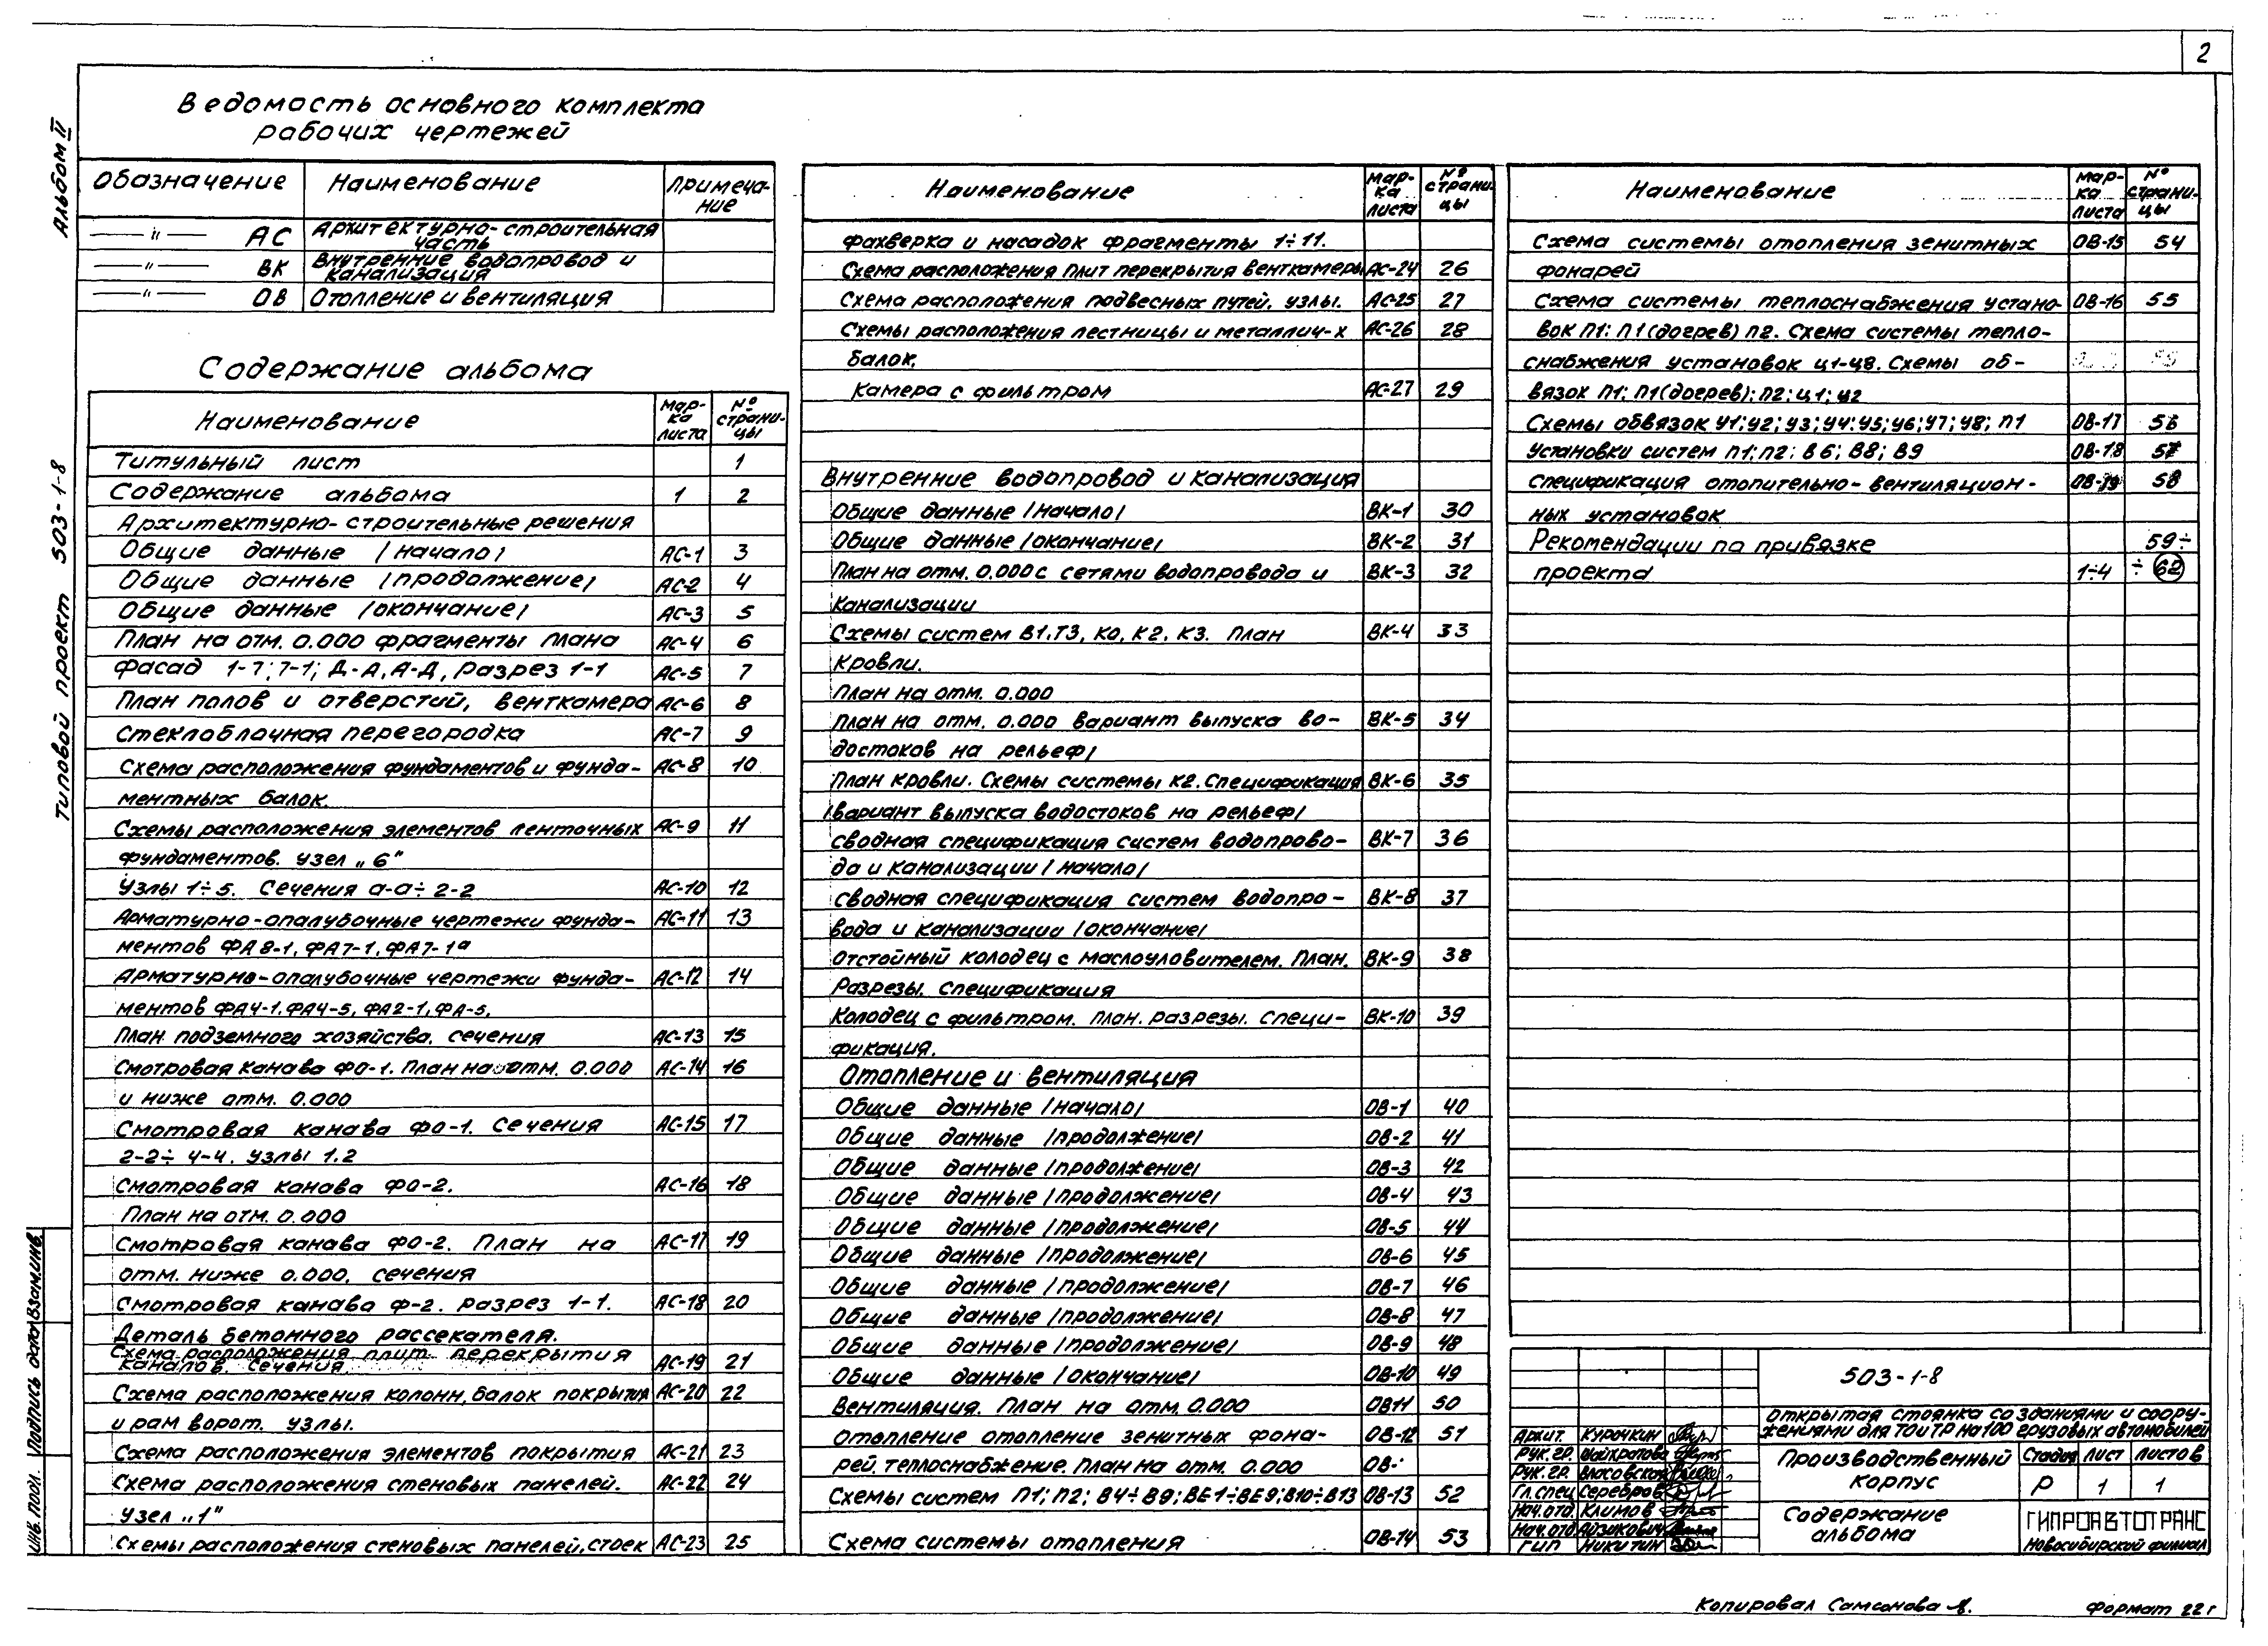 2
Альбом II
Типовой проект 503-1-8
Ведомость основного комплекта
рабочих чертежей
Обозначение Наименование Примеча-
ние
—"— АС Архитектурно-строительная
часть
—"— ВК Внутренние водопровод и
канализация
—"— ОВ Отопление и вентиляция
Содержание альбома
Наименование Мар-
ка
листа № страни-
цы
Титульный лист 1
Содержание альбома 1 2
Архитектурно-строительные решения
Общие данные /начало/ АС-1 3
Общие данные /продолжение/ АС-2 4
Общие данные /окончание/ АС-3 5
План на отм. 0.000 фрагменты плана АС-4 6
Фасад 1-7; 7-1; Д-А, А-Д, Разрез 1-1 АС-5 7
План полов и отверстий, венткамера АС-6 8
Стеклоблочная перегородка АС-7 9
Схема расположения фундаментов и фунда- АС-8 10
ментных балок.
Схемы расположения элементов ленточных АС-9 11
фундаментов. Узел „6"
Узлы 1÷5. Сечения а-а÷2-2 АС-10 12
Арматурно-опалубочные чертежи фунда- АС-11 13
ментов ФА8-1, ФА7-1, ФА7-1а
Арматурно-опалубочные чертежи фунда- АС-12 14
ментов ФА4-1, ФА4-5, ФА2-1, ФА-5,
План подземного хозяйства. Сечения АС-13 15
Смотровая канава ФО-1. План на отм. 0.000 АС-14 16
и ниже отм. 0.000
Смотровая канава ФО-1. Сечения АС-15 17
2-2÷4-4. Узлы 1.2
Смотровая канава ФО-2. АС-16 18
План на отм. 0.000
Смотровая канава ФО-2. План на АС-17 19
отм. ниже 0.000. Сечения
Смотровая канава Ф-2. Разрез 1-1. АС-18 20
Деталь бетонного рассекателя.
Схема расположения плит перекрытия
каналов. Сечения. АС-19 21
Схема расположения колонн, балок покрытия АС-20 22
и рам ворот. Узлы.
Схема расположения элементов покрытия АС-21 23
Схема расположения стеновых панелей. АС-22 24
Узел „1"
Схемы расположения стеновых панелей, стоек АС-23 25
Наименование Мар-
ка
листа № страни-
цы
фахверка и насадок фрагменты 1÷11.
Схема расположения плит перекрытия венткамеры АС-24 26
Схема расположения подвесных путей. Узлы. АС-25 27
Схемы расположения лестницы и металлич-х АС-26 28
балок.
Камера с фильтром АС-27 29
Внутренние водопровод и канализация
Общие данные /начало/ ВК-1 30
Общие данные /окончание/ ВК-2 31
План на отм. 0.000 с сетями водопровода и ВК-3 32
канализации
Схемы систем В1, Т3, К0, К2, К3. План ВК-4 33
кровли.
План на отм. 0.000
План на отм. 0.000 вариант выпуска во- ВК-5 34
достоков на рельеф/
План кровли. Схемы системы К2. Спецификация ВК-6 35
/вариант выпуска водостоков на рельеф/
Сводная спецификация систем водопрово- ВК-7 36
да и канализации /начало/
Сводная спецификация систем водопро- ВК-8 37
вода и канализации /окончание/
Отстойный колодец с маслоуловителем. План. ВК-9 38
Разрезы. Спецификация
Колодец с фильтром. План. разрезы. Специ- ВК-10 39
фикация.
Отопление и вентиляция
Общие данные /начало/ ОВ-1 40
Общие данные /продолжение/ ОВ-2 41
Общие данные /продолжение/ ОВ-3 42
Общие данные /продолжение/ ОВ-4 43
Общие данные /продолжение/ ОВ-5 44
Общие данные /продолжение/ ОВ-6 45
Общие данные /продолжение/ ОВ-7 46
Общие данные /продолжение/ ОВ-8 47
Общие данные /продолжение/ ОВ-9 48
Общие данные /окончание/ ОВ-10 49
Вентиляция. План на отм. 0.000 ОВ11 50
Отопление отопление зенитных фона- ОВ-12 51
рей. Теплоснабжение. План на отм. 0.000 ОВ-
Схемы систем П1; П2; В4÷В9; ВЕ1÷ВЕ9; В10÷В13 ОВ-13 52
Схема системы отопления ОВ-14 53
Наименование Мар-
ка
листа № страни-
цы
Схема системы отопления зенитных ОВ-15 54
фонарей
Схема системы теплоснабжения устано- ОВ-16 55
вок П1; П1(догрев) П2. Схема системы тепло-
снабжения установок ц1-ц8. Схемы об-
вязок П1; П1(догрев); П2; ц1; у2
Схемы обвязок У1; У2; У3; У4; У5; У6; У7; У8; П1 ОВ-17 56
Установки систем П1; П2; В6; В8; В9 ОВ-18 57
Спецификация отопительно-вентиляцион- ОВ-19 58
ных установок
Рекомендации по привязке 59÷
проекта 1÷4 ÷62
503-1-8
Открытая стоянка со зданиями и соору-
жениями для ТО и ТР на 100 грузовых автомобилей
Архит. Курочкин
Рук. гр.
Рук. гр. Власовская
Гл. спец Серебров
Нач. отд. Климов
Нач. отд Айзикович
ГИП Никитин
Производственный
корпус
Стадия Лист Листов
Р 1 1
Содержание
альбома
ГИПРОАВТОТРАНС
Новосибирский филиал
Инв. подл. Подпись дата Взам. инв.
Копировал Самсонова Формат 22г